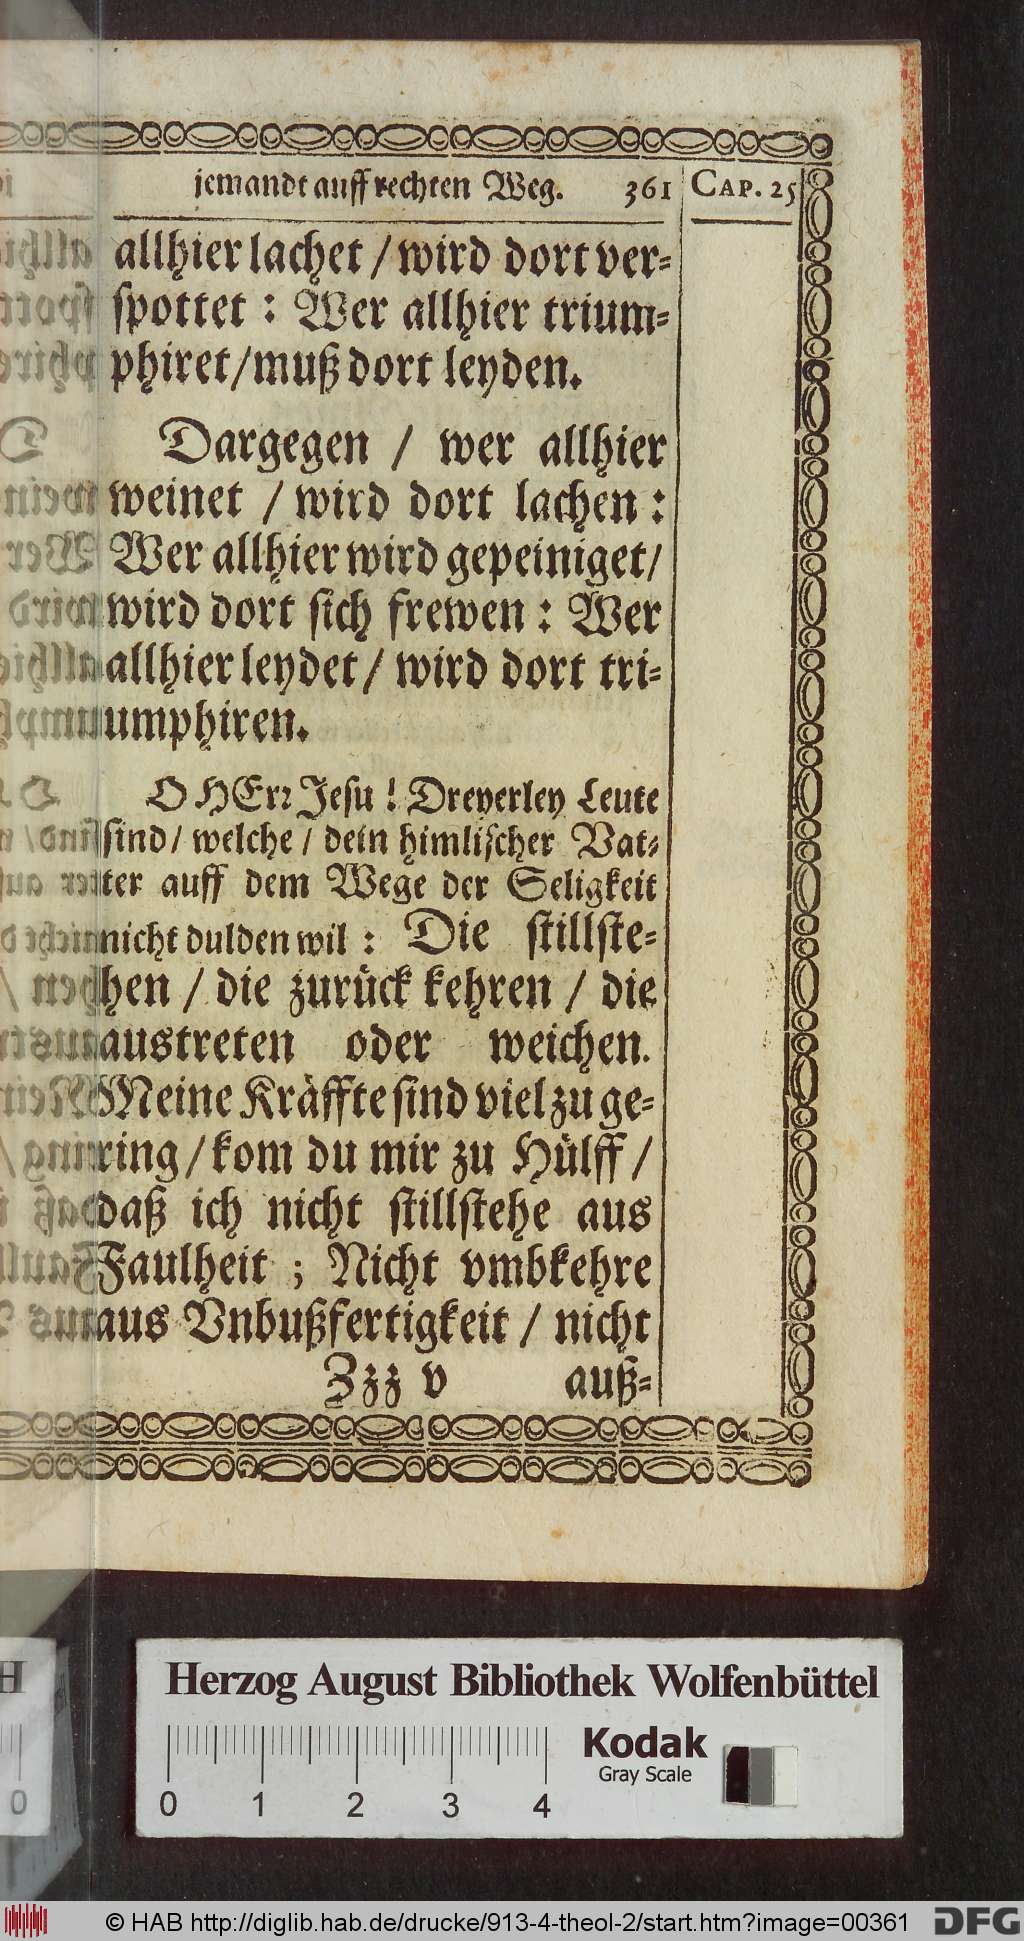 jemandt auff rechten Weg. 361 CAP. 25
allhier lachet / wird dort ver-
spottet : Wer allhier trium-
phiret / muß dort leyden.
Dargegen / wer allhier
weinet / wird dort lachen :
Wer allhier wird gepeiniget /
wird dort sich frewen : Wer
allhier leydet / wird dort tri-
umphiren.
O HErr Jesu ! Dreyerley Leute
sind / welche / dein himlischer Vat-
ter auff dem Wege der Seligkeit
nicht dulden wil : Die stillste-
hen / die zurück kehren / die
austreten oder weichen.
Meine Kräffte sind viel zu ge-
ring / kom du mir zu Hülff /
daß ich nicht stillstehe aus
Faulheit ; Nicht vmbkehre
aus Vnbußfertigkeit / nicht
Zzz v auß-
Herzog August Bibliothek Wolfenbüttel
Kodak
Gray Scale
0 1 2 3 4
H
0
© HAB http://diglib.hab.de/drucke/913-4-theol-2/start.htm?image=00361 DFG